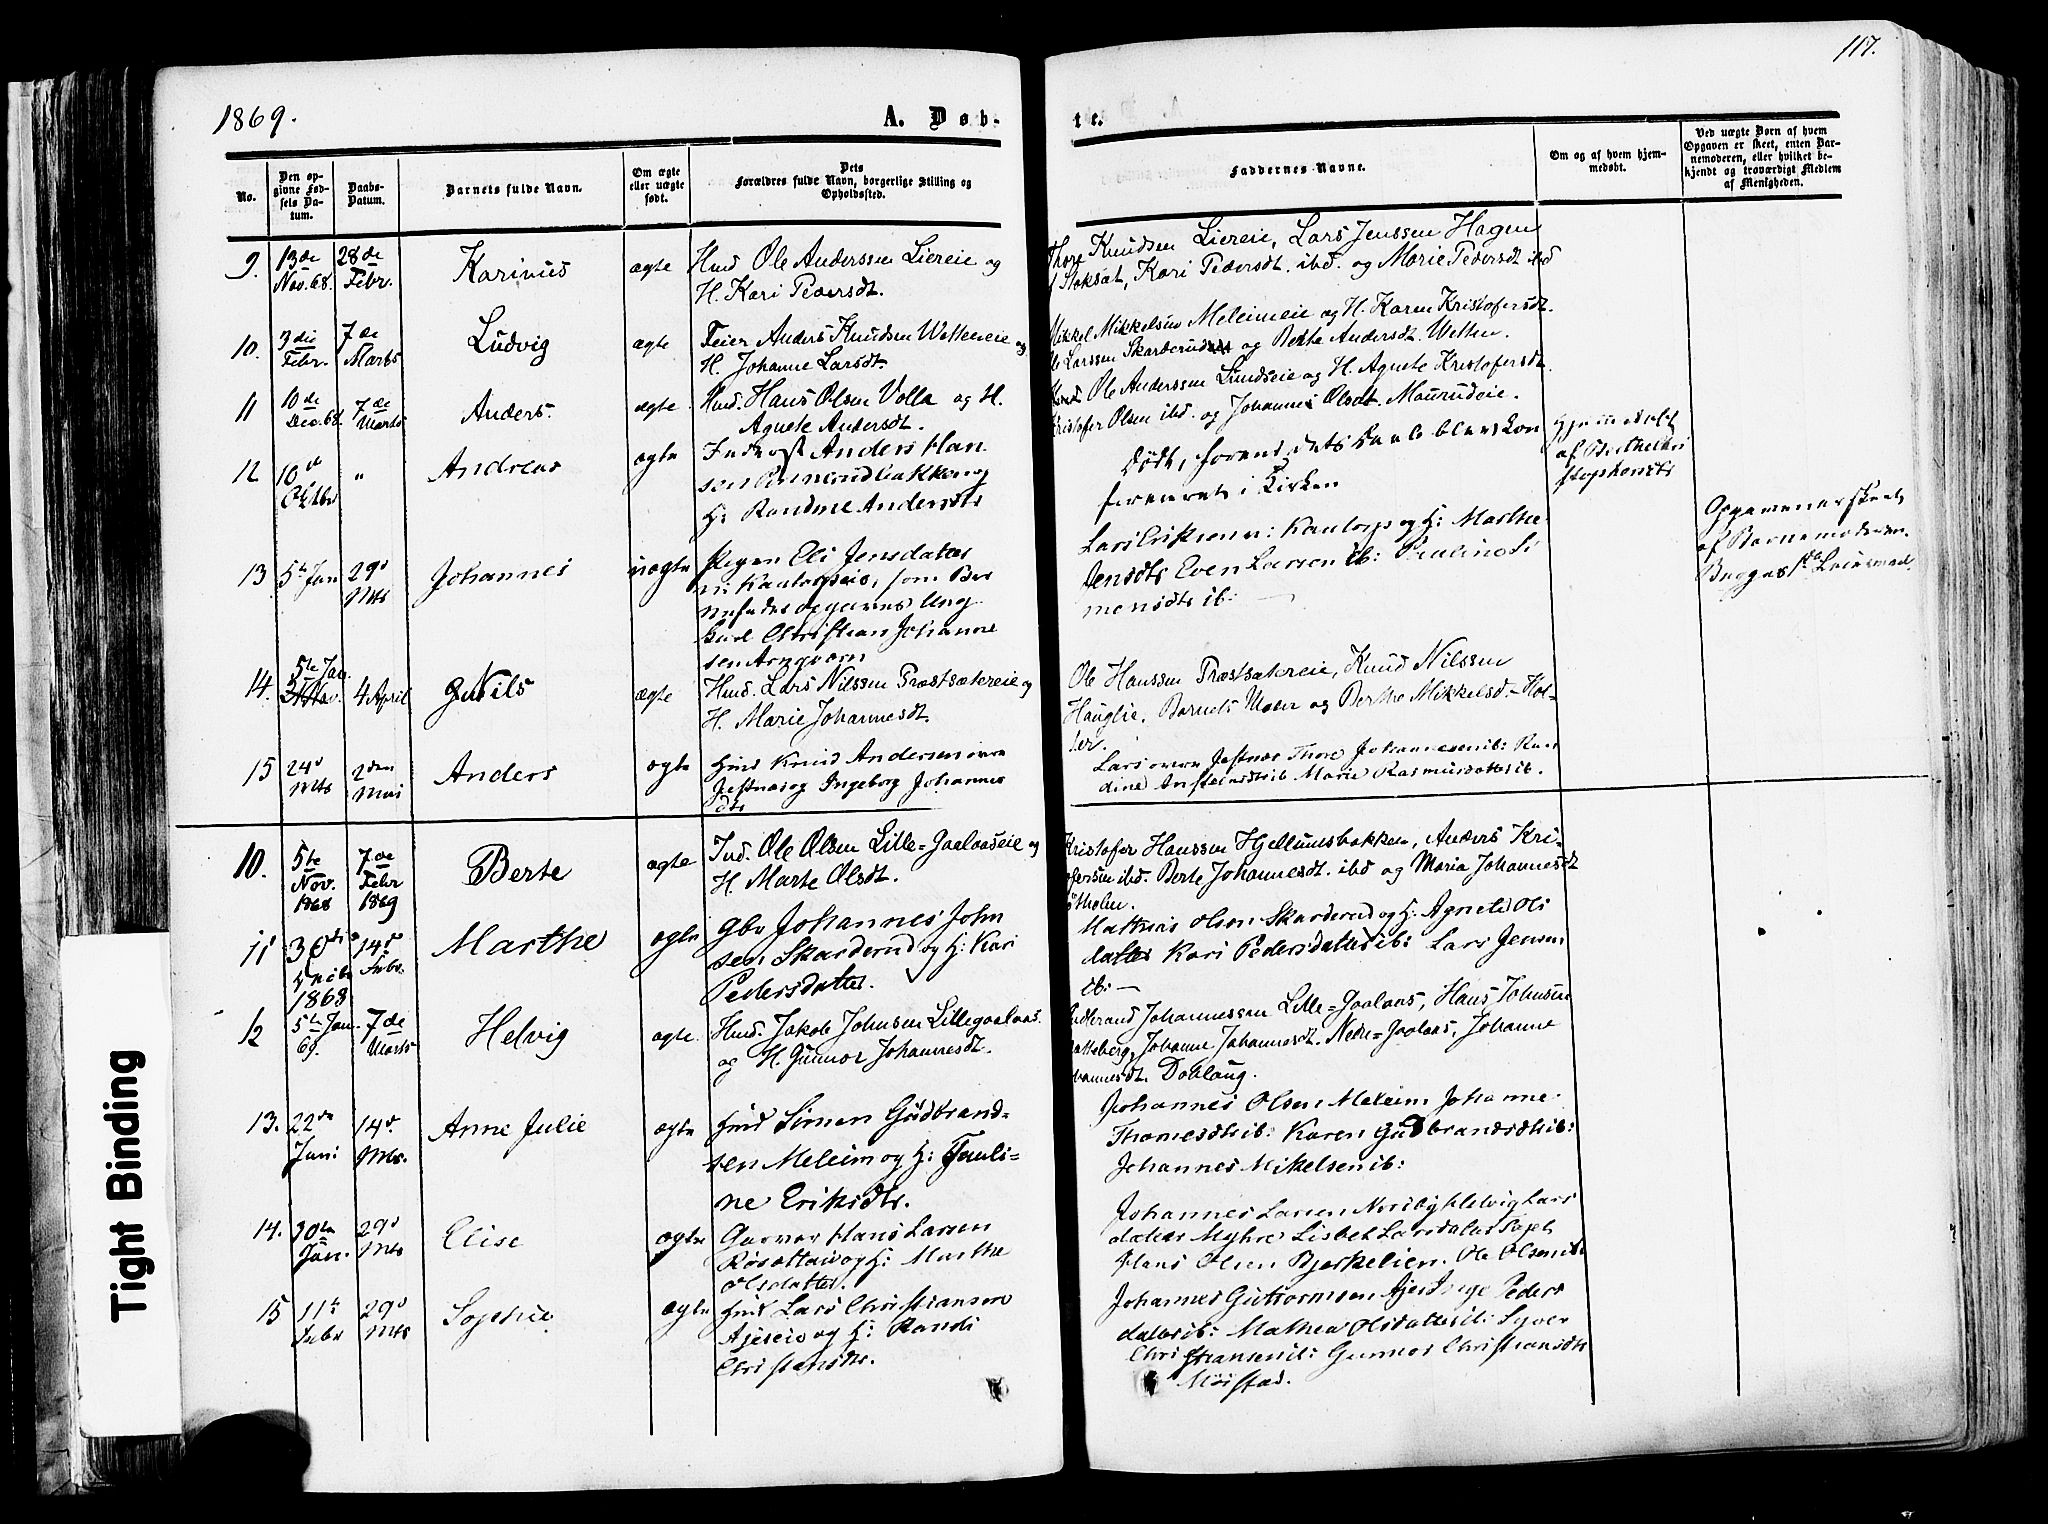 117.
1869.
A. Døb-
te.
No.
Den op-
givne Fød-
sels Da-
tum.
Daabs-
Datum.
Barnets fulde Navn.
Om ægte
eller uægte
født.
Dets
Forældres fulde Navn, borgerlige Stilling og
Opholdssted.
Faddernes Navne.
Om og af hvem hjem-
medøbt.
Ved uægte Børn af hvem
Opgaven er skeet, enten Bar-
nemoderen, eller hvilket be-
kjendt og troværdigt Medlem
af Menigheden.
9. 13de Nov. 68. 28de Febr. Karinus ægte Hmd Ole Anderssen Liereie og
H. Kari Pedersdt.
Thore Knudsen Liereie, Lars Jenssen Hagen
Stoksat, Kari Pedersdt. ibd. og Marie Pedersdt ibd
10. 3die Febr. 7de Marts Ludvig ægte Feier Anders Knudsen Wetteneie og
H. Johanne Larsdt.
Mikkel Mikkelsen Meleimeie og H. Karen Kristofersdt.
Larssen Skarderud og Berte Andersdt. Wetten.
11 10de Dec. 68. 7de Marts Anders. ægte Hmd. Hans Olsen Volla og H.
Agnete Andersdt.
Ole Anderssen Lundseie og H. Agnete Kristofersdt.
Kristofer Olsen ibd. og Johannes Olsdt. Maurudeie.
12 10d Oktbr " Andreas ægte Inderst Anders Han
sen
H: Randine Andersdtr
Død, forend dets Daab blev kon
fereret i Kirken
Hjemmedøbt
af Berthe
Stephensdtr
13 5te Jan 29d Mts Johannes uægte Pigen Eli Jensdatter
Kautorpseie, som Bar
nefader opgaves Ung
karl Christian Johanne
sen Arnqværn
Lars Eriksen Kautorp og H: Marthe
Jensdtr Even Larsen ib: Pauline Si
mensdtr ib: —
Opgaven er skeet
af Barnemoderen.
Begges 1ste Leiermaal.
14. 5te Jan. 4 April Nils ægte Hmd. Lars Nilssen Præstsætereie og
H. Marie Johannesdt.
Ole Hanssen Præstsætereie, Knud Nilssen
Hauglie, Barnets Moder og Berthe Mikkelsd. Hol-
ter.
15 24d Mts 2den Mai Anders ægte Hmd Knud Andersen øvre
Jestnæs og Ingeborg Johannes
dtr
Lars øvre Jestnæs Thore Johannesen ib: Ran
dine Anstensdtr ib Marie Rasmusdatter ib.
10. 5te Nov. 1868 7de Febr 1869 Berte ægte Ind. Ole Olsen Lille-Gaalaaseie og
H. Marte Olsdt.
Kristofer Hanssen Hjellumsbakken, Anders Kri-
stofersen ibd. Berte Johannesdt. ibd og Maria Johannesdt
11 30te 1868 14d Febr. Marthe ægte Gbr Johannes John
sen Skarderud og H: Kari
Pedersdatter.
Mathias Olsen Skarderud og H: Agnete Ols
datter Kari Pedersdatter ib: Lars Jensen
ib: —
12 5te Jan. 69. 7de Marts Helvig ægte Hmd. Jakob Johnsen Lillegaalaas.
og H. Gunnor Johannesdt.
Gudbrand Johannessen Lille-Gaalaas, Hans Johnsen
Johanne Johannesdt. Nedre-Gaalaas, Johanne
Johannesdt. Doblaug.
13. 22de Jan: 14d. Mts. Anne Julie ægte Hmd Simen Gudbrand-
sen Meleim og H: Pauli-
ne Eriksdtr.
Johannes Olsen Meleim Johanne
Thomesdtr ib: Karen Gudbrandsdtr ib:
Johannes Mikelsen ib:
14. 30te Jan. 29d Mts Elise ægte Garver Hans Larsen
Røsætteie og H: Marthe
Olsdatter.
Johannes Larsen Nordby Helvig Lars
datter Myhre Lisbet Larsdatter
Hans Olsen Bjerkelien. Ole Olsen ib
15 11te Febr 29d Mts Sophie ægte Hmd Lars Christiansen
Ajerseie og H: Randi
Christiansdtr.
Johannes Guttormsen Ajer Inge Peders
datter ib: Mathea Olsdatter ib: Syver
Christiansen ib: Gunnor Christiansdtr
Møistad.
Tight Binding